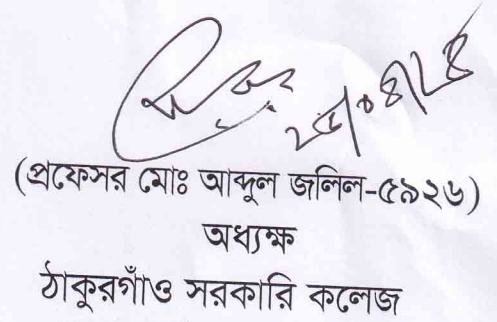 (প্রফেসর মোঃ আব্দুল জলিল-৫৯২৬)
অধ্যক্ষ
ঠাকুরগাঁও সরকারি কলেজ